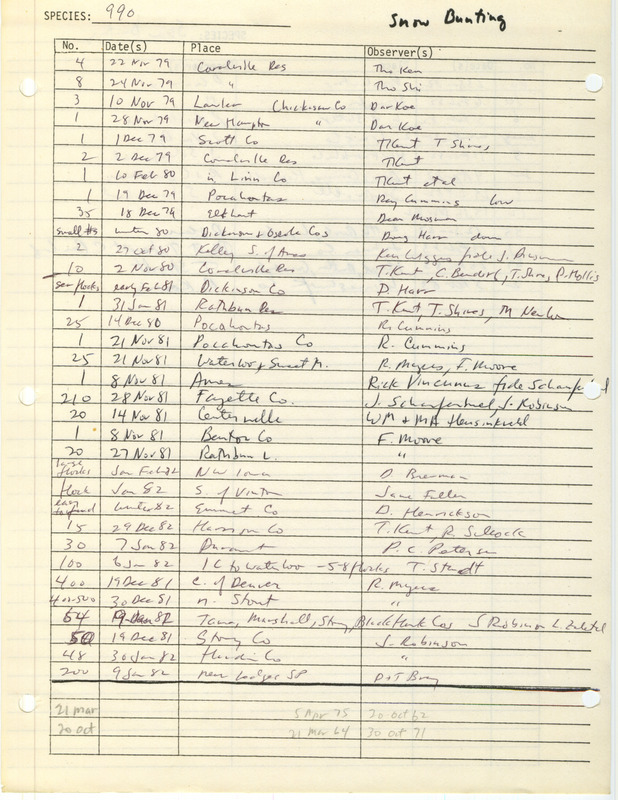 SPECIES: 990 Snow Bunting
No. Date(s) Place Observer(s)
4 22 Nov 79 Coralville Res Tho Ken
8 24 Nov 79 " Tho Shi
3 10 Nov 79 Lawler Chickasaw Co Dar Koe
1 28 Nov 79 New Hampton " Dar Koe
1 1 Dec 79 Scott Co TKent T Shires
2 2 Dec 79 Coralville Res TKent
1 10 Feb 80 in Linn Co TKent etal
1 19 Dec 79 Pocahontas Ray Cummins
35 18 Dec 79 Elkhart Dean Mosman
small #s winter 80 Dickinson & Osceola Cos Doug Harr
2 27 Oct 80 Kelley S. of Ames fide J.
10 2 Nov 80 Coralville Res T. Kent, C. Bendorf, T. Shires, P. Hollis
sev flocks early Feb 81 Dickinson Co D. Harr
1 31 Jan 81 Rathbun Res T. Kent, T. Shires, M Newlon
25 14 Dec 80 Pocahontas R. Cummins
1 21 Nov 81 Pocahontas Co R. Cummins
25 21 Nov 81 Waterloo, Sweet M. R. Myers, F. Moore
1 8 Nov 81 Ames Rick fide
210 28 Nov 81 Fayette Co. J. J. Robinson
20 14 Nov 81 Centerville WM + MA
1 8 Nov 81 Benton Co F. Moore
20 27 Nov 81 Rathbun L. "
large flocks Jan Feb 82 NW Iowa D. Brenman
flock Jan 82 S. of Vinton Jane Fuller
easy to find winter 82 Emmet Co D. Henrickson
15 29 Dec 82 Harrison Co T. Kent R. Silcock
30 7 Jan 82 Durant P. C. Petersen
100 6 Jan 82 IC to Waterloo -5-8 flocks T. Staudt
400 19 Dec 81 C. of Denver R. Myers
400-500 30 Dec 81 n. Stout "
64 Tama, Marshall, Story, Black Hawk Cos J Robinson L. Zaletel
50 19 Dec 81 Story Co J. Robinson
48 30 Jan 82 Hardin Co "
200 9 Jan 82 near Ledges SP D+T Bray
21 mar 5 Apr 75 30 Oct 62
30 oct 21 Mar 64 30 Oct 71